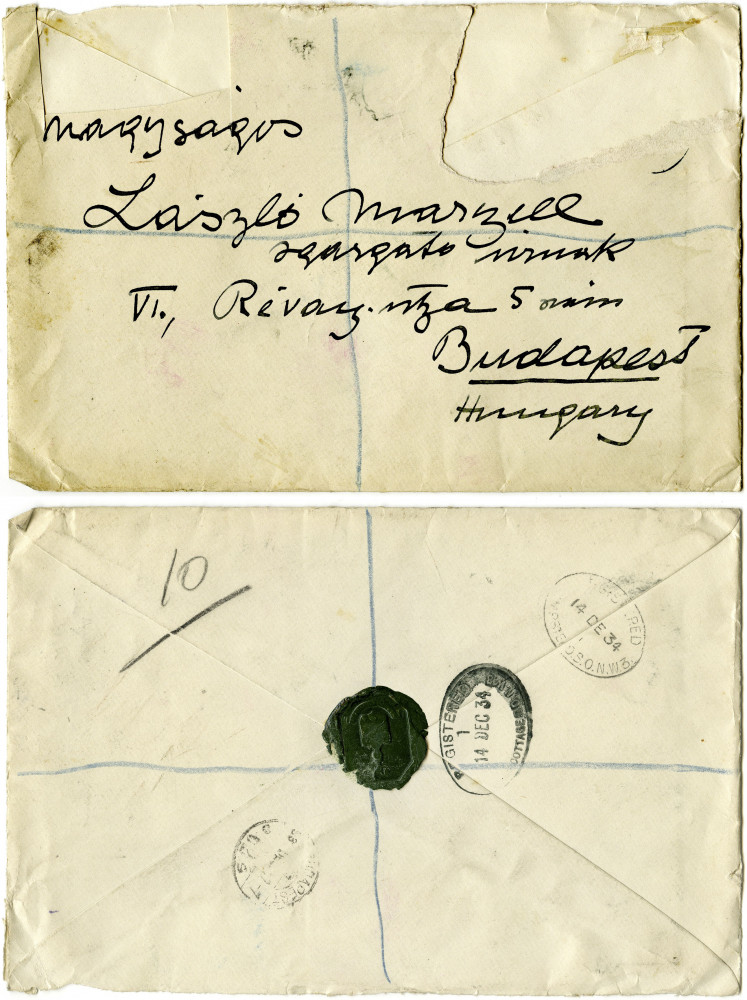 Nagyságos
László Marzell
igazgató úrnak
VI., Révay-utza 5 szám
Budapest
Hungary
10
REGISTERED
14 DE 34
N.W.3.
REGISTERED
1
14 DEC 34
BUDAPEST